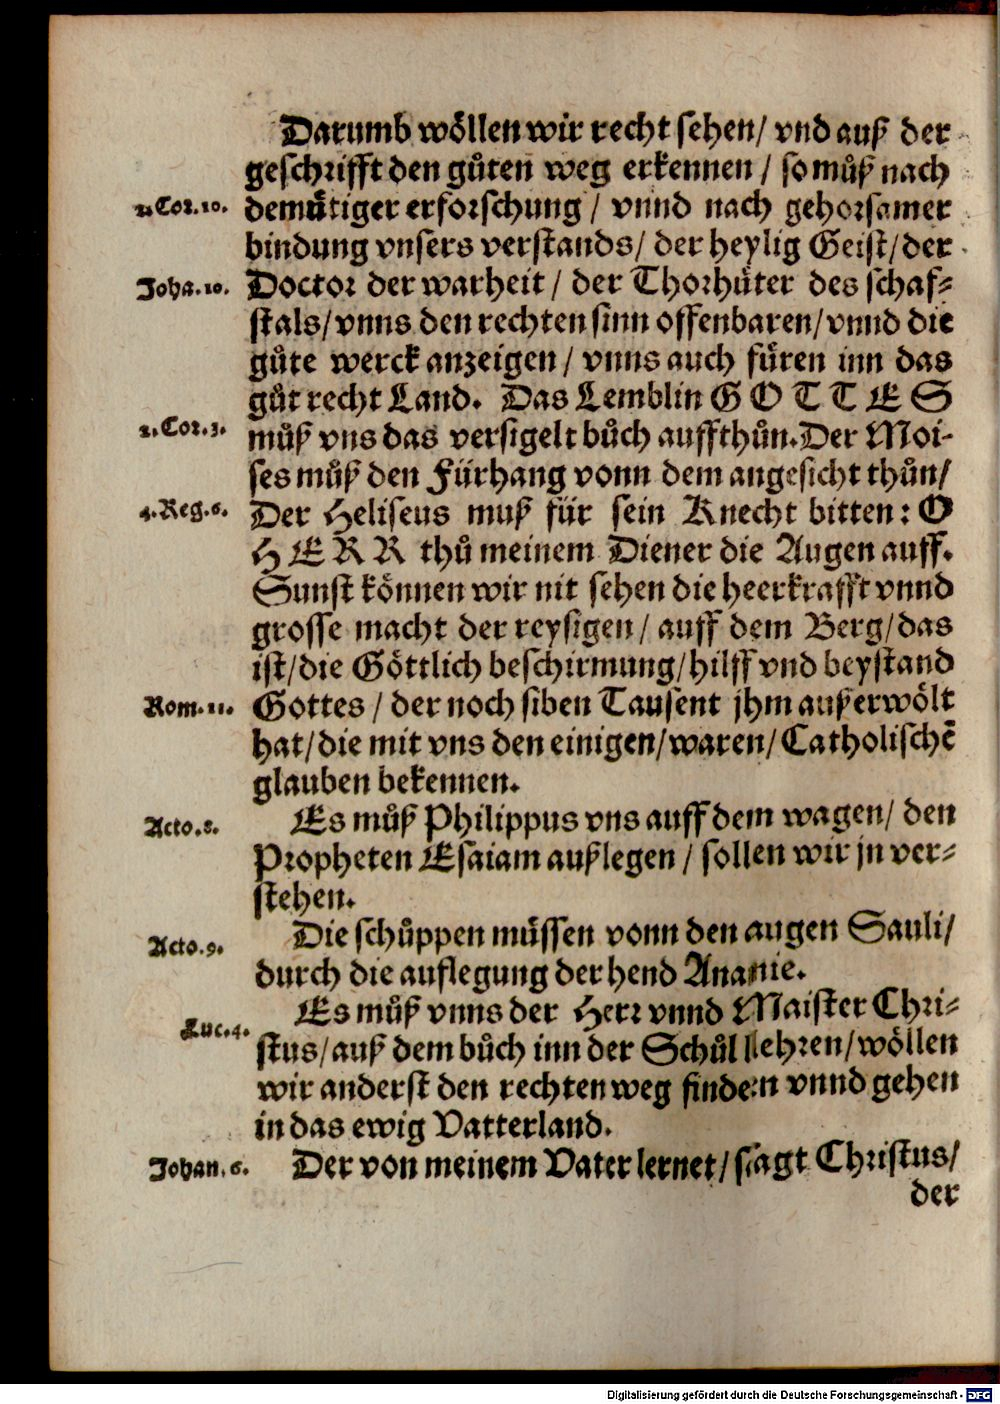 Darumb wöllen wir recht sehen/ vnd auß der
geschrifft den gůten weg erkennen / so můß nach
2. Cor. 10. demůtiger erforschung / vnnd nach gehorsamer
bindung vnsers verstands/ der heylig Geist/ der
Joha. 10. Doctor der warheit / der Thorhüter des schaf⸗
stals/ vnns den rechten sinn offenbaren/ vnnd die
gůte werck anzeigen / vnns auch füren inn das
gůt recht Land. Das Lemblin G O T T E S
2. Cor. 3. můß vns das versigelt bůch auffthůn. Der Moi-
ses můß den Fürhang vonn dem angesicht thůn/
4. Reg. 6. Der Heliseus muß für sein Knecht bitten: O
H E R R thů meinem Diener die Augen auff.
Sunst können wir nit sehen die heerkrafft vnnd
grosse macht der reysigen / auff dem Berg/ das
ist/ die Göttlich beschirmung/ hilff vnd beystand
Rom. 11. Gottes / der noch siben Tausent jhm außerwölt
hat/ die mit vns den einigen/ waren/ Catholischẽ
glauben bekennen.
Acto. 8. Es můß Philippus vns auff dem wagen/ den
Propheten Esaiam außlegen / sollen wir jn ver⸗
stehen.
Acto. 9. Die schůppen müssen vonn den augen Sauli/
durch die auflegung der hend Ananie.
Es můß vnns der Herr vnnd Maister Chri⸗
Luc. 4. stus/ auß dem bůch inn der Schůl lehren/ wöllen
wir anderst den rechten weg finden vnnd gehen
in das ewig Vatterland.
Johan. 6. Der von meinem Vater lernet/ sagt Christus/
der
Digitalisierung gefördert durch die Deutsche Forschungsgemeinschaft - DFG